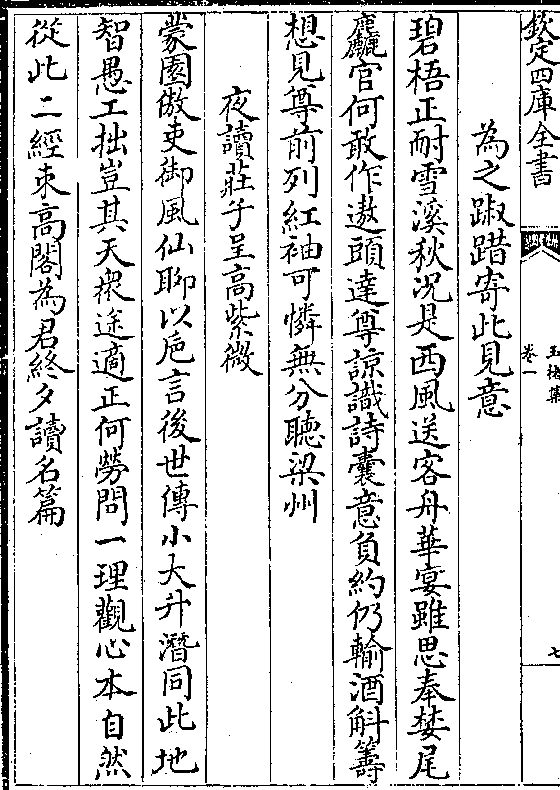 欽定四庫全書
卷一
七
為之踧踖寄此見意
碧梧正耐雪溪秋况是西風送客舟華宴雖思奉婪尾
麤官何敢作遨頭達尊諒識詩囊意負約仍輸酒斛籌
想見尊前列紅袖可憐無分聽梁州
夜讀莊子呈高紫微
蒙園傲吏御風仙聊以巵言後世傳小大升潛同此地
智愚工拙豈其天衆途適正何勞問一理觀心本自然
從此二經束高閣為君終夕讀名篇